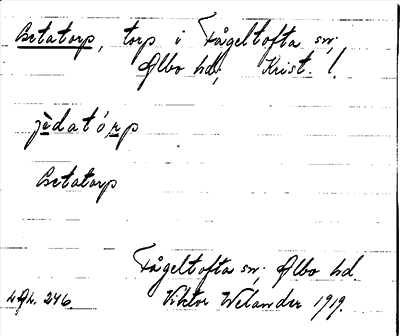 Betatorp, torp i Fågeltofta sn;
Albo hd, Krist. l.
Betatorp
Fågeltofta sn; Albo hd.
Viktor Welander 1919.